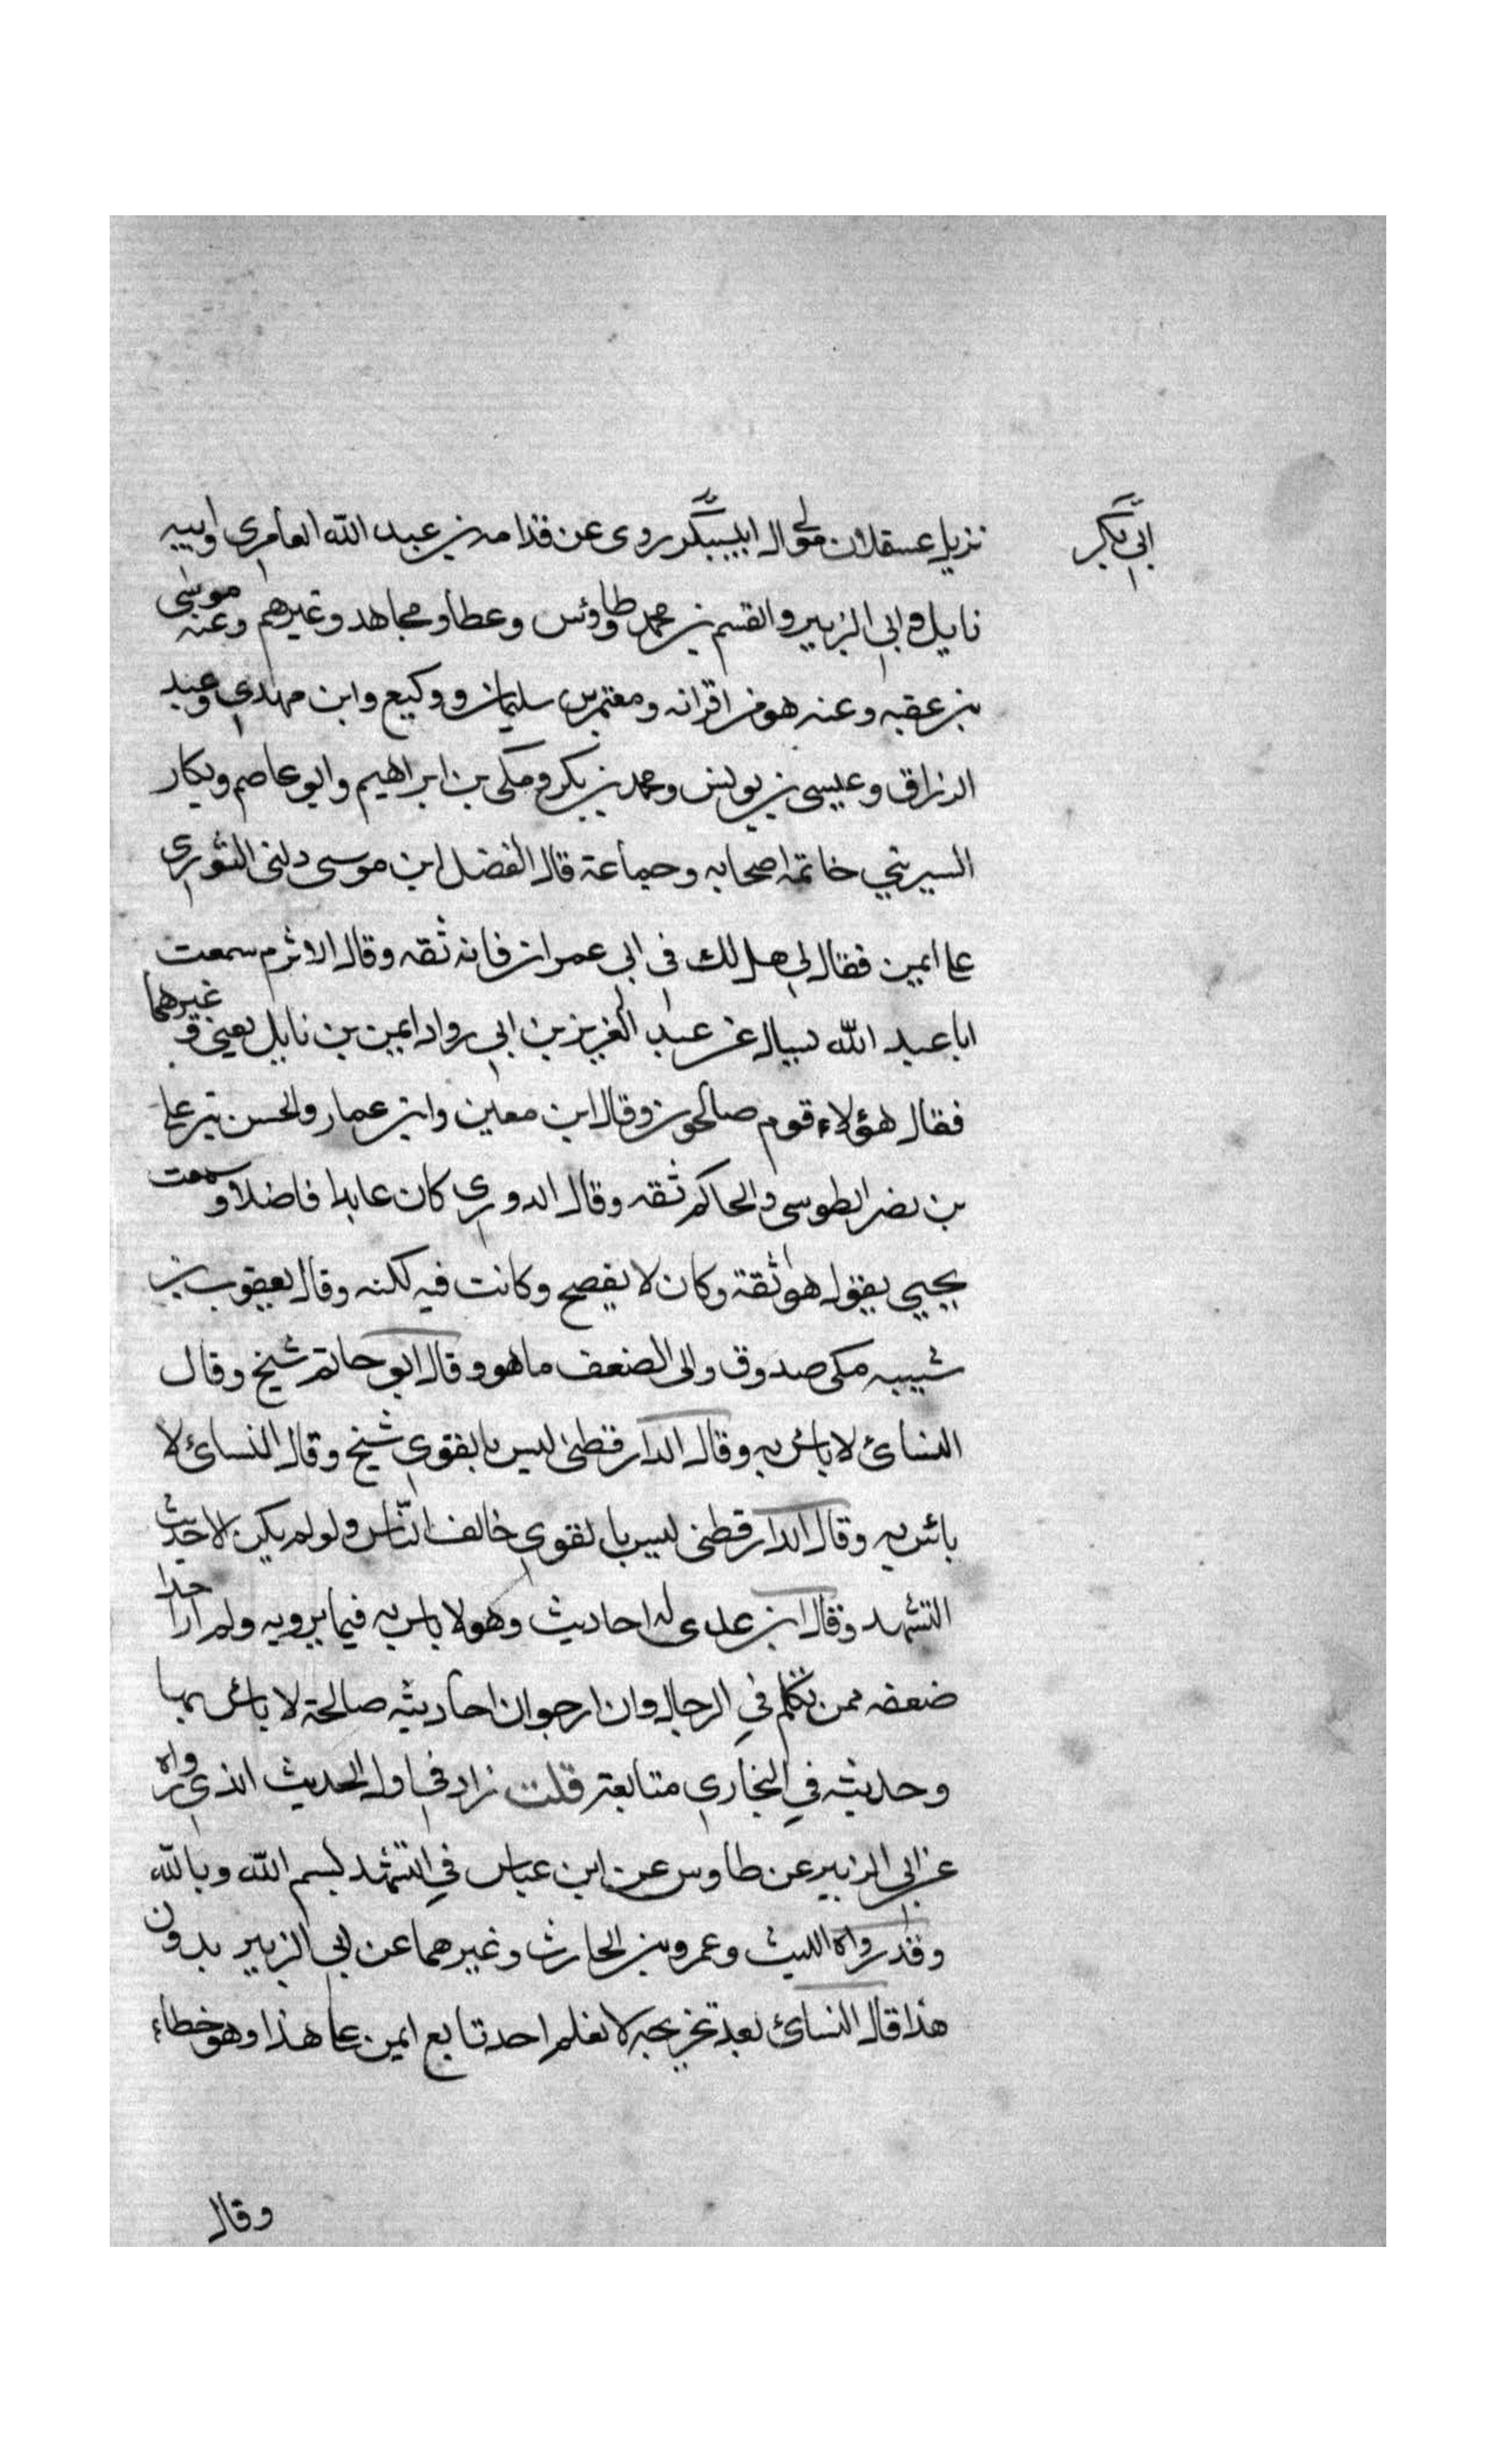 ابي بكر
نزيل عسقلان مولى ال روى عن قدامه بن عبد الله العامري وابيه
نايل وابي الزبير والقسم بن محمد وطاوئس وعطا ومجاهد وغيرهم وعنه موسى
بن عقبه وعنه هو من اقرانه ومعتمر بن سليمان ووكيع وابن مهدي وعبد
الرزاق وعيسى بن يونس ومحمد بن بكر ومكى بن ابراهيم وابو عاصم وبكار
السيريني خاتمة اصحابه وجماعة قال الفضل ابن موسى دلنى الثوري
على ايمين فقال لي هل لك فى ابي عمران فانه ثقه وقال الاثرم سمعت
ابا عبد الله يسال عن عبد العزيز بن ابي رواد ايمين بن نايل يعني وغيرهما
فقال هؤلاء قوم صالحون وقال ابن معين وابن عمار والحسن بن على
بن نصر الطوسى والحاكم ثقه وقال الدوري كان عابدا فاضلا وسمعت
يحيي يقول هو ثقة وكان لا يفصح وكانت فيه لكنه وقال يعقوب بن
شيبه مكى صدوق والى الضعف ما هو وقال ابو حاتم شيخ وقال
النسائ لا باس به وقال الدارقطنى ليس بالقوي شيخ وقال النسائ لا
بائس به وقال الدارقطنى ليس بالقوي خالف النّاس ولو لم يكن الا حديث
التشهد وقال ابن عدى له احاديث وهو لا باس به فيما يرويه ولم ار احدا
ضعفه ممن تكلم في الرجال وان ارجو ان احاديثه صالحة لا باس بها
وحديثه في البخاري متابعة قلت زاد في اول الحديث الذي رواه
عن ابي الزبير عن طاوس عن ابن عباس في التشهد بسم الله وبالله
وقد رواه الليث وعمرو بن الحارث وغيرهما عن ابي الزبير بدون
هذا قال النسائ بعد تخريجه لا نعلم احد تابع ايمن على هذا وهو خطاء
وقال